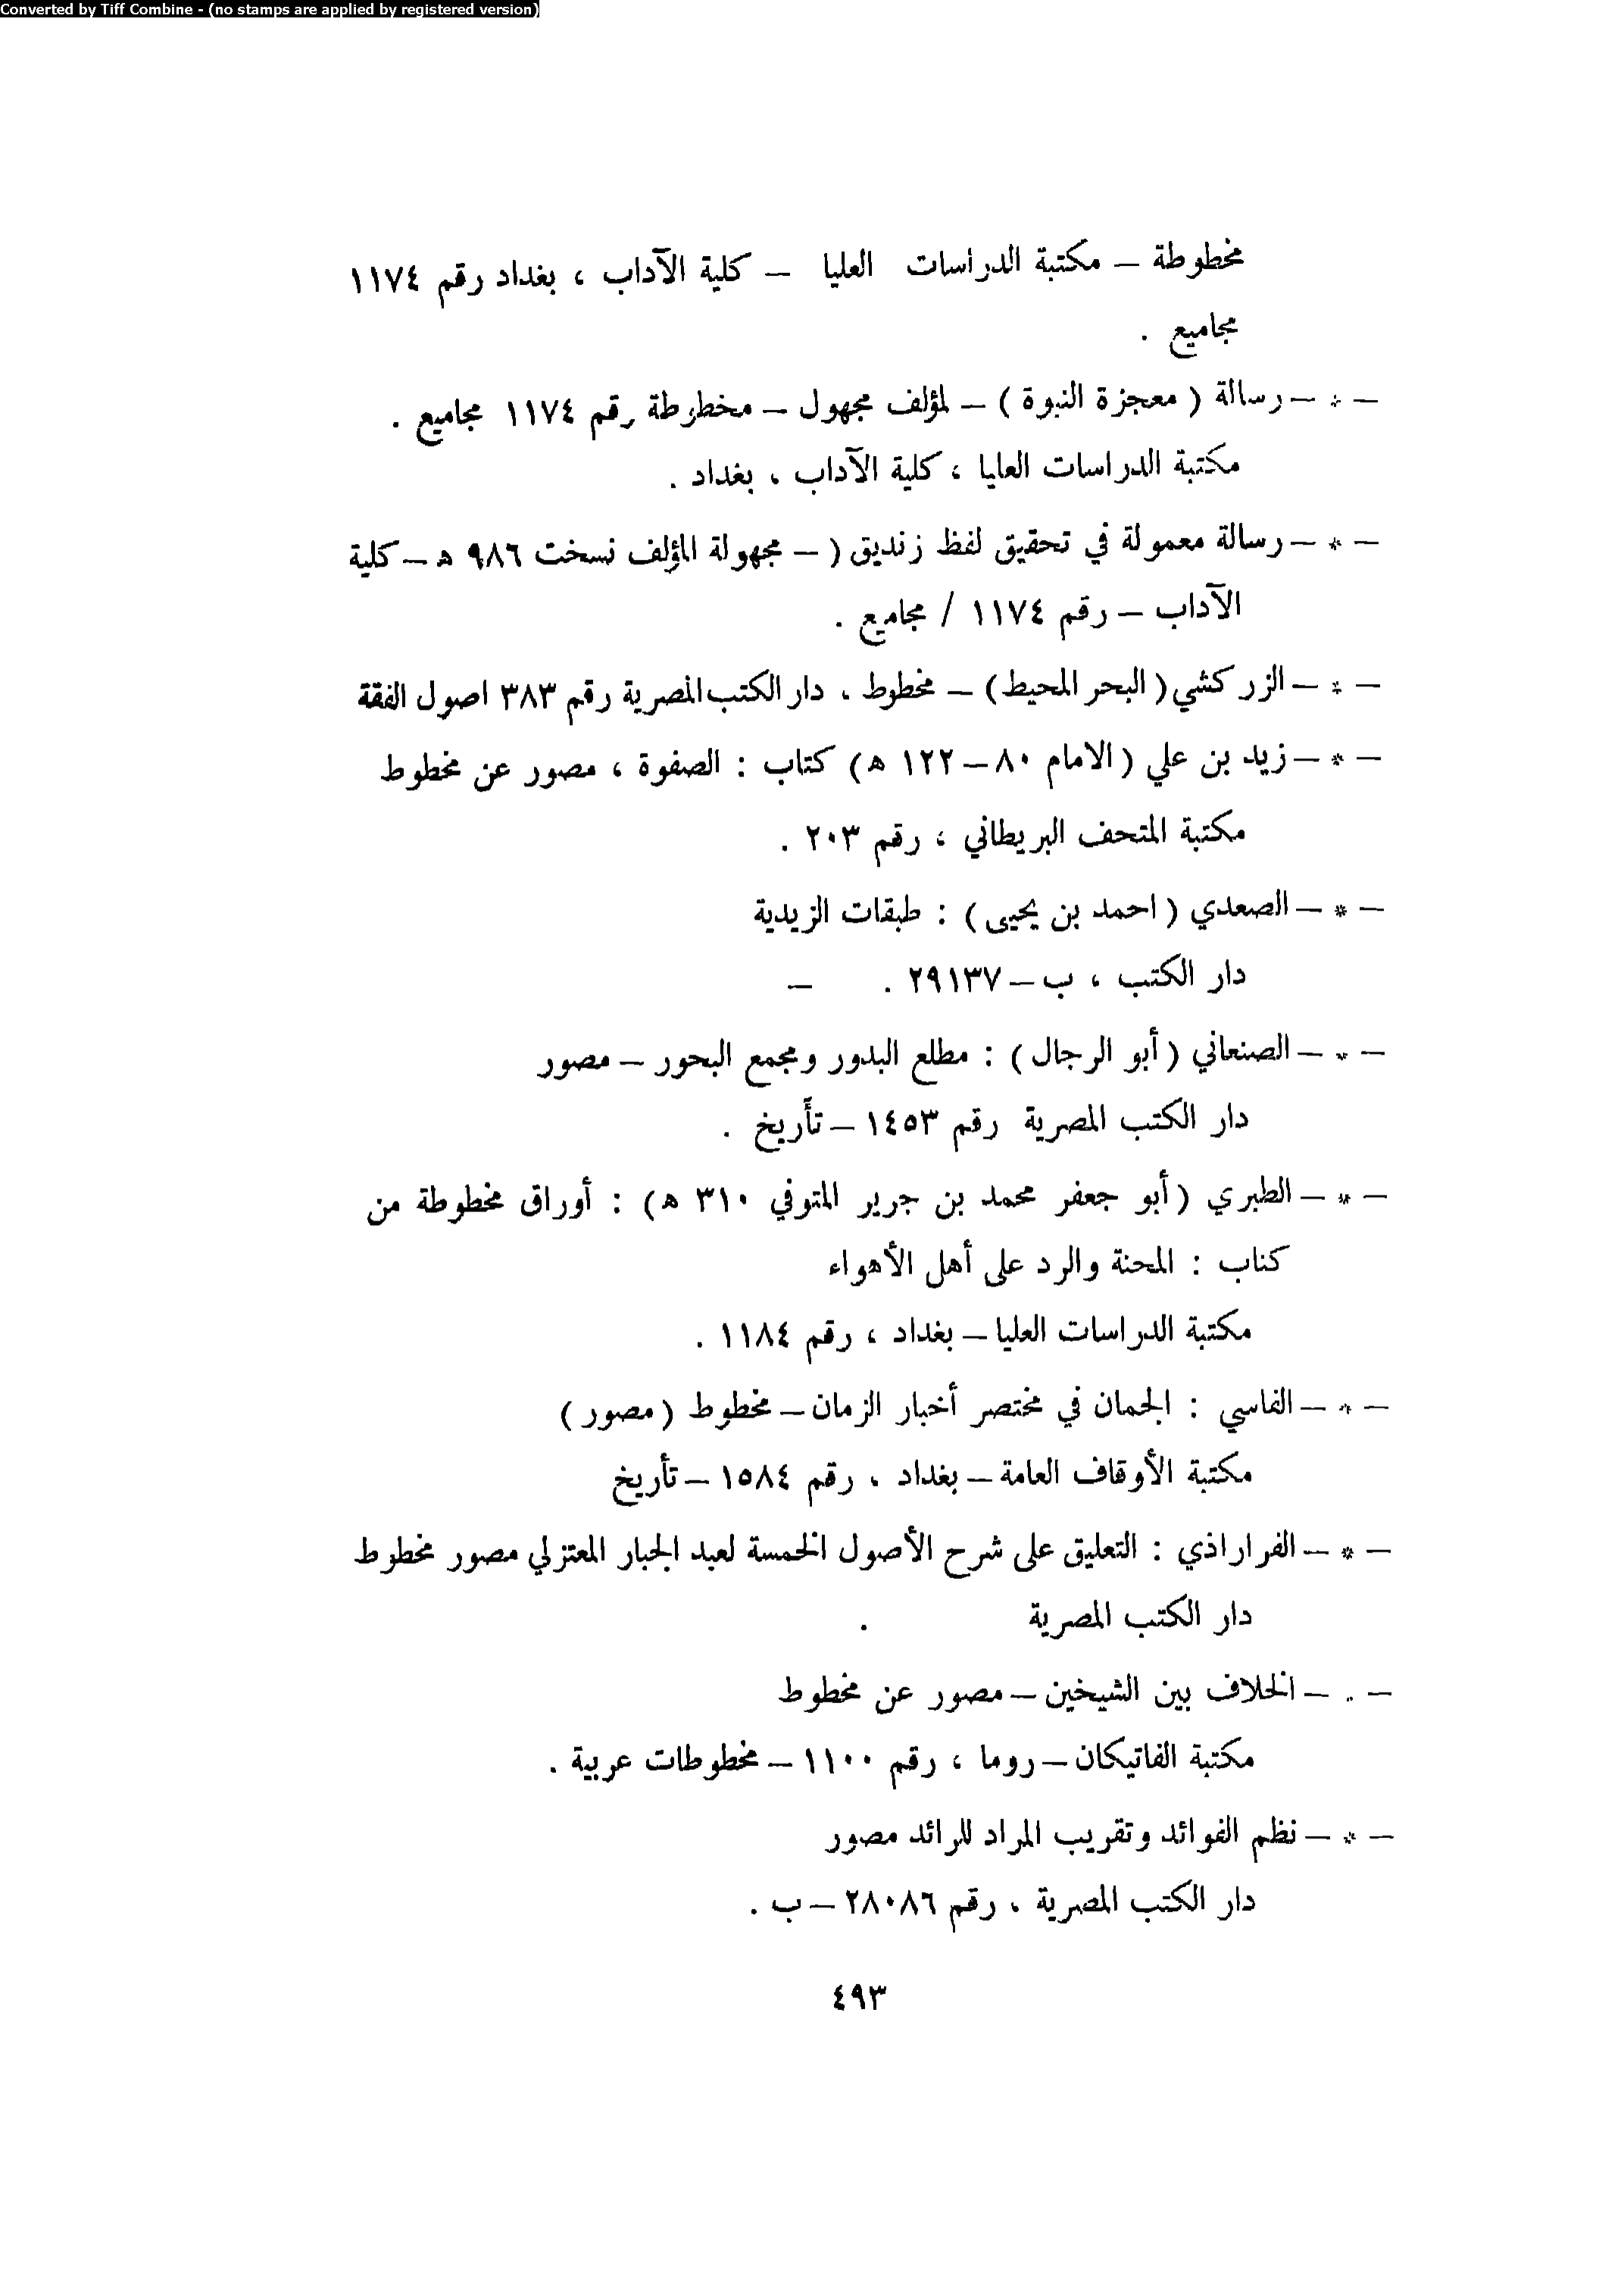 Converted by Tiff Combine - (no stamps are applied by registered version)
مخطوطة – مكتبة الدراسات العليا – كلية الآداب ، بغداد رقم ١١٧٤
مجاميع .
– * – رسالة ( معجزة النبوة ) – لمؤلف مجهول – مخطوطة رقم ١١٧٤ مجاميع .
مكتبة الدراسات العليا ، كلية الآداب ، بغداد .
– * – رسالة معمولة في تحقيق لفظ زنديق ( – مجهولة المؤلف نسخت ٩٨٦ ه – كلية
الآداب – رقم ١١٧٤ / مجاميع .
– * – الزركشي ( البحر المحيط ) – مخطوط ، دار الكتب المصرية رقم ٣٨٣ اصول الفقة
– * – زيد بن علي ( الامام ٨٠ – ١٢٢ ه ) كتاب : الصفوة ، مصور عن مخطوط
مكتبة المتحف البريطاني ، رقم ٢٠٣ .
– * – الصعدي ( احمد بن يحيى ) : طبقات الزيدية
دار الكتب ، ب – ٢٩١٣٧ . –
– * – الصنعاني ( أبو الرجال ) : مطلع البدور ومجمع البحور – مصور
دار الكتب المصرية رقم ١٤٥٣ – تأريخ .
– * – الطبري ( أبو جعفر محمد بن جرير المتوفي ٣١٠ ه ) : أوراق مخطوطة من
كتاب : المحنة والرد على أهل الأهواء
مكتبة الدراسات العليا – بغداد ، رقم ١١٨٤ .
– * – الفاسي : الجمان في مختصر أخبار الزمان – مخطوط ( مصور )
مكتبة الأوقاف العامة – بغداد ، رقم ١٥٨٤ – تأريخ
– * – الفرازاذي : التعليق على شرح الأصول الخمسة لعبد الجبار المعتزلي مصور مخطوط
دار الكتب المصرية .
– * – الخلاف بين الشيخين – مصور عن مخطوط
مكتبة الفاتيكان – روما ، رقم ١١٠٠ – مخطوطات عربية .
– * – نظم الفوائد وتقريب المراد للرائد مصور
دار الكتب المصرية ، رقم ٢٨٠٨٦ – ب .
٤٩٣